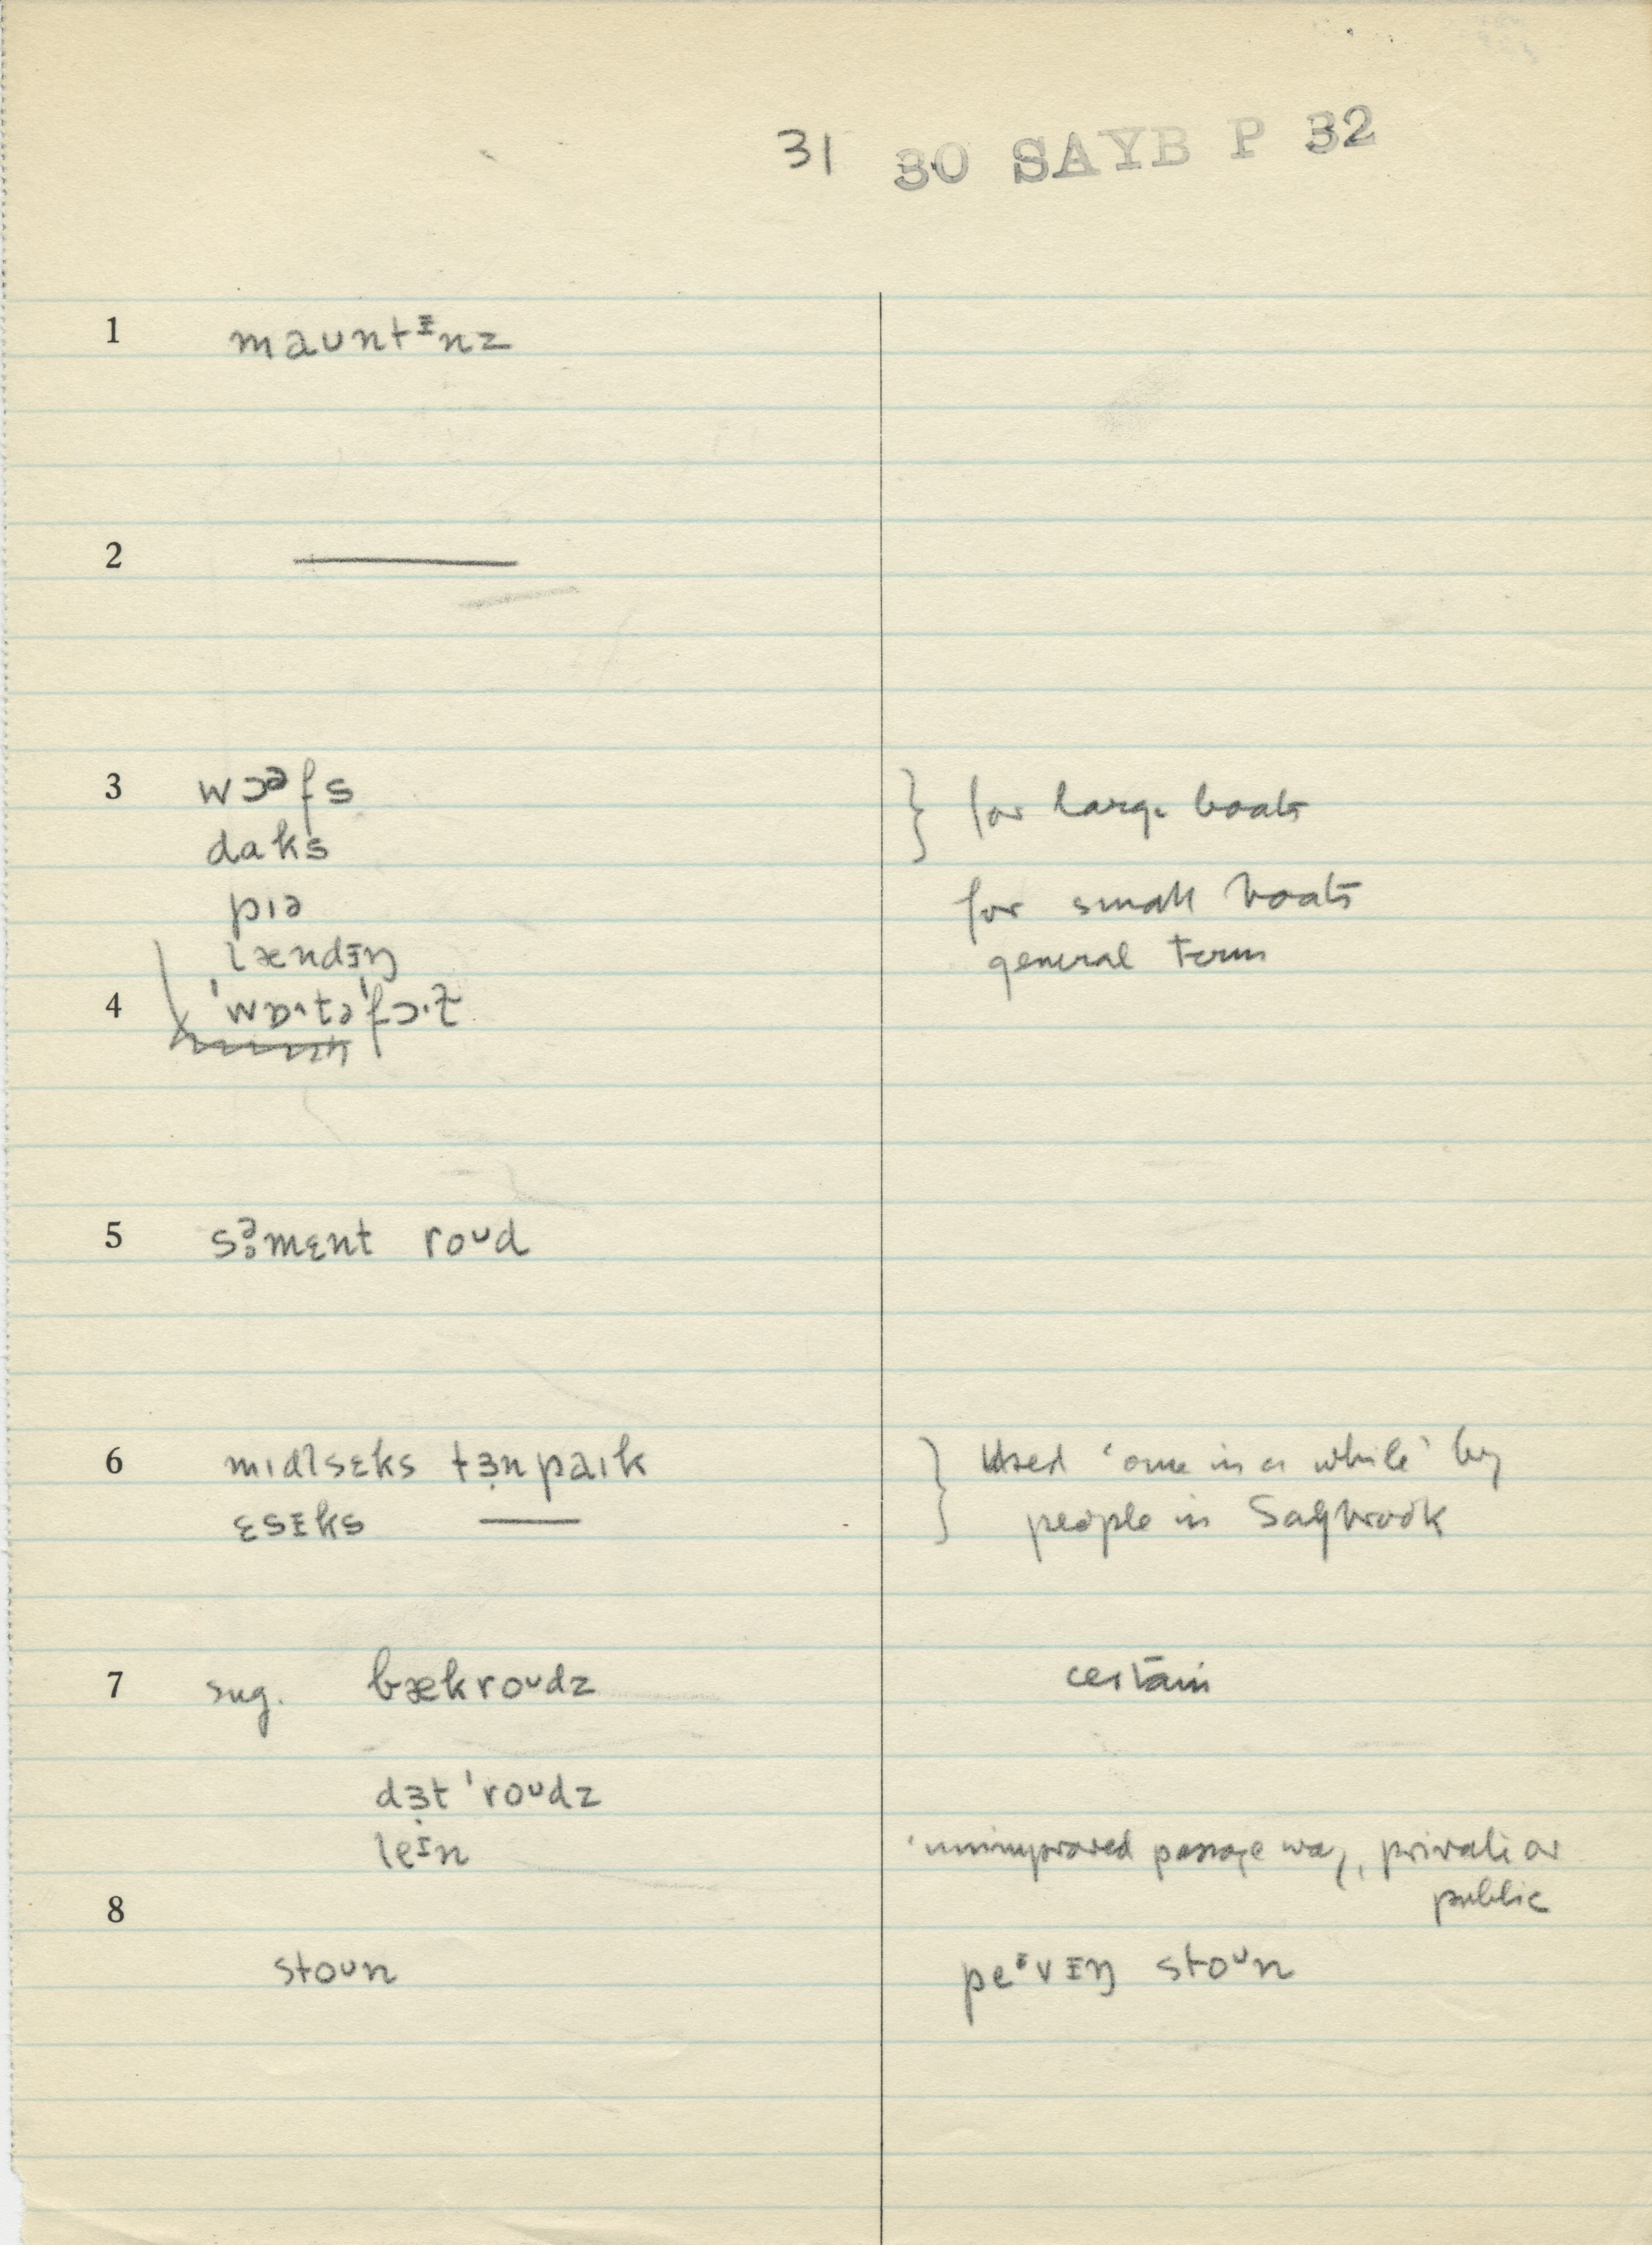 31 30 SAYB P 32
1 maʊntᵻnz
2
3 wɔəfs } for large boats
daks
pɪə for small boats
lændᵻŋ general term
4 'wɒ˄tə'fɔ·ɫ
5 sə̥mɛnt roᴜd
6 mɪdlsɛks tɜ̣npaɪk } Used 'once in a while' by
ɛsᵻks —— people in Saybrook
7 sug. bækroᴜdz certain
dɜ̣t 'roᴜdz
leᵻn 'unimproved passage way, private or
public
8
stoᴜn peᵻvᵻŋ stoᴜn